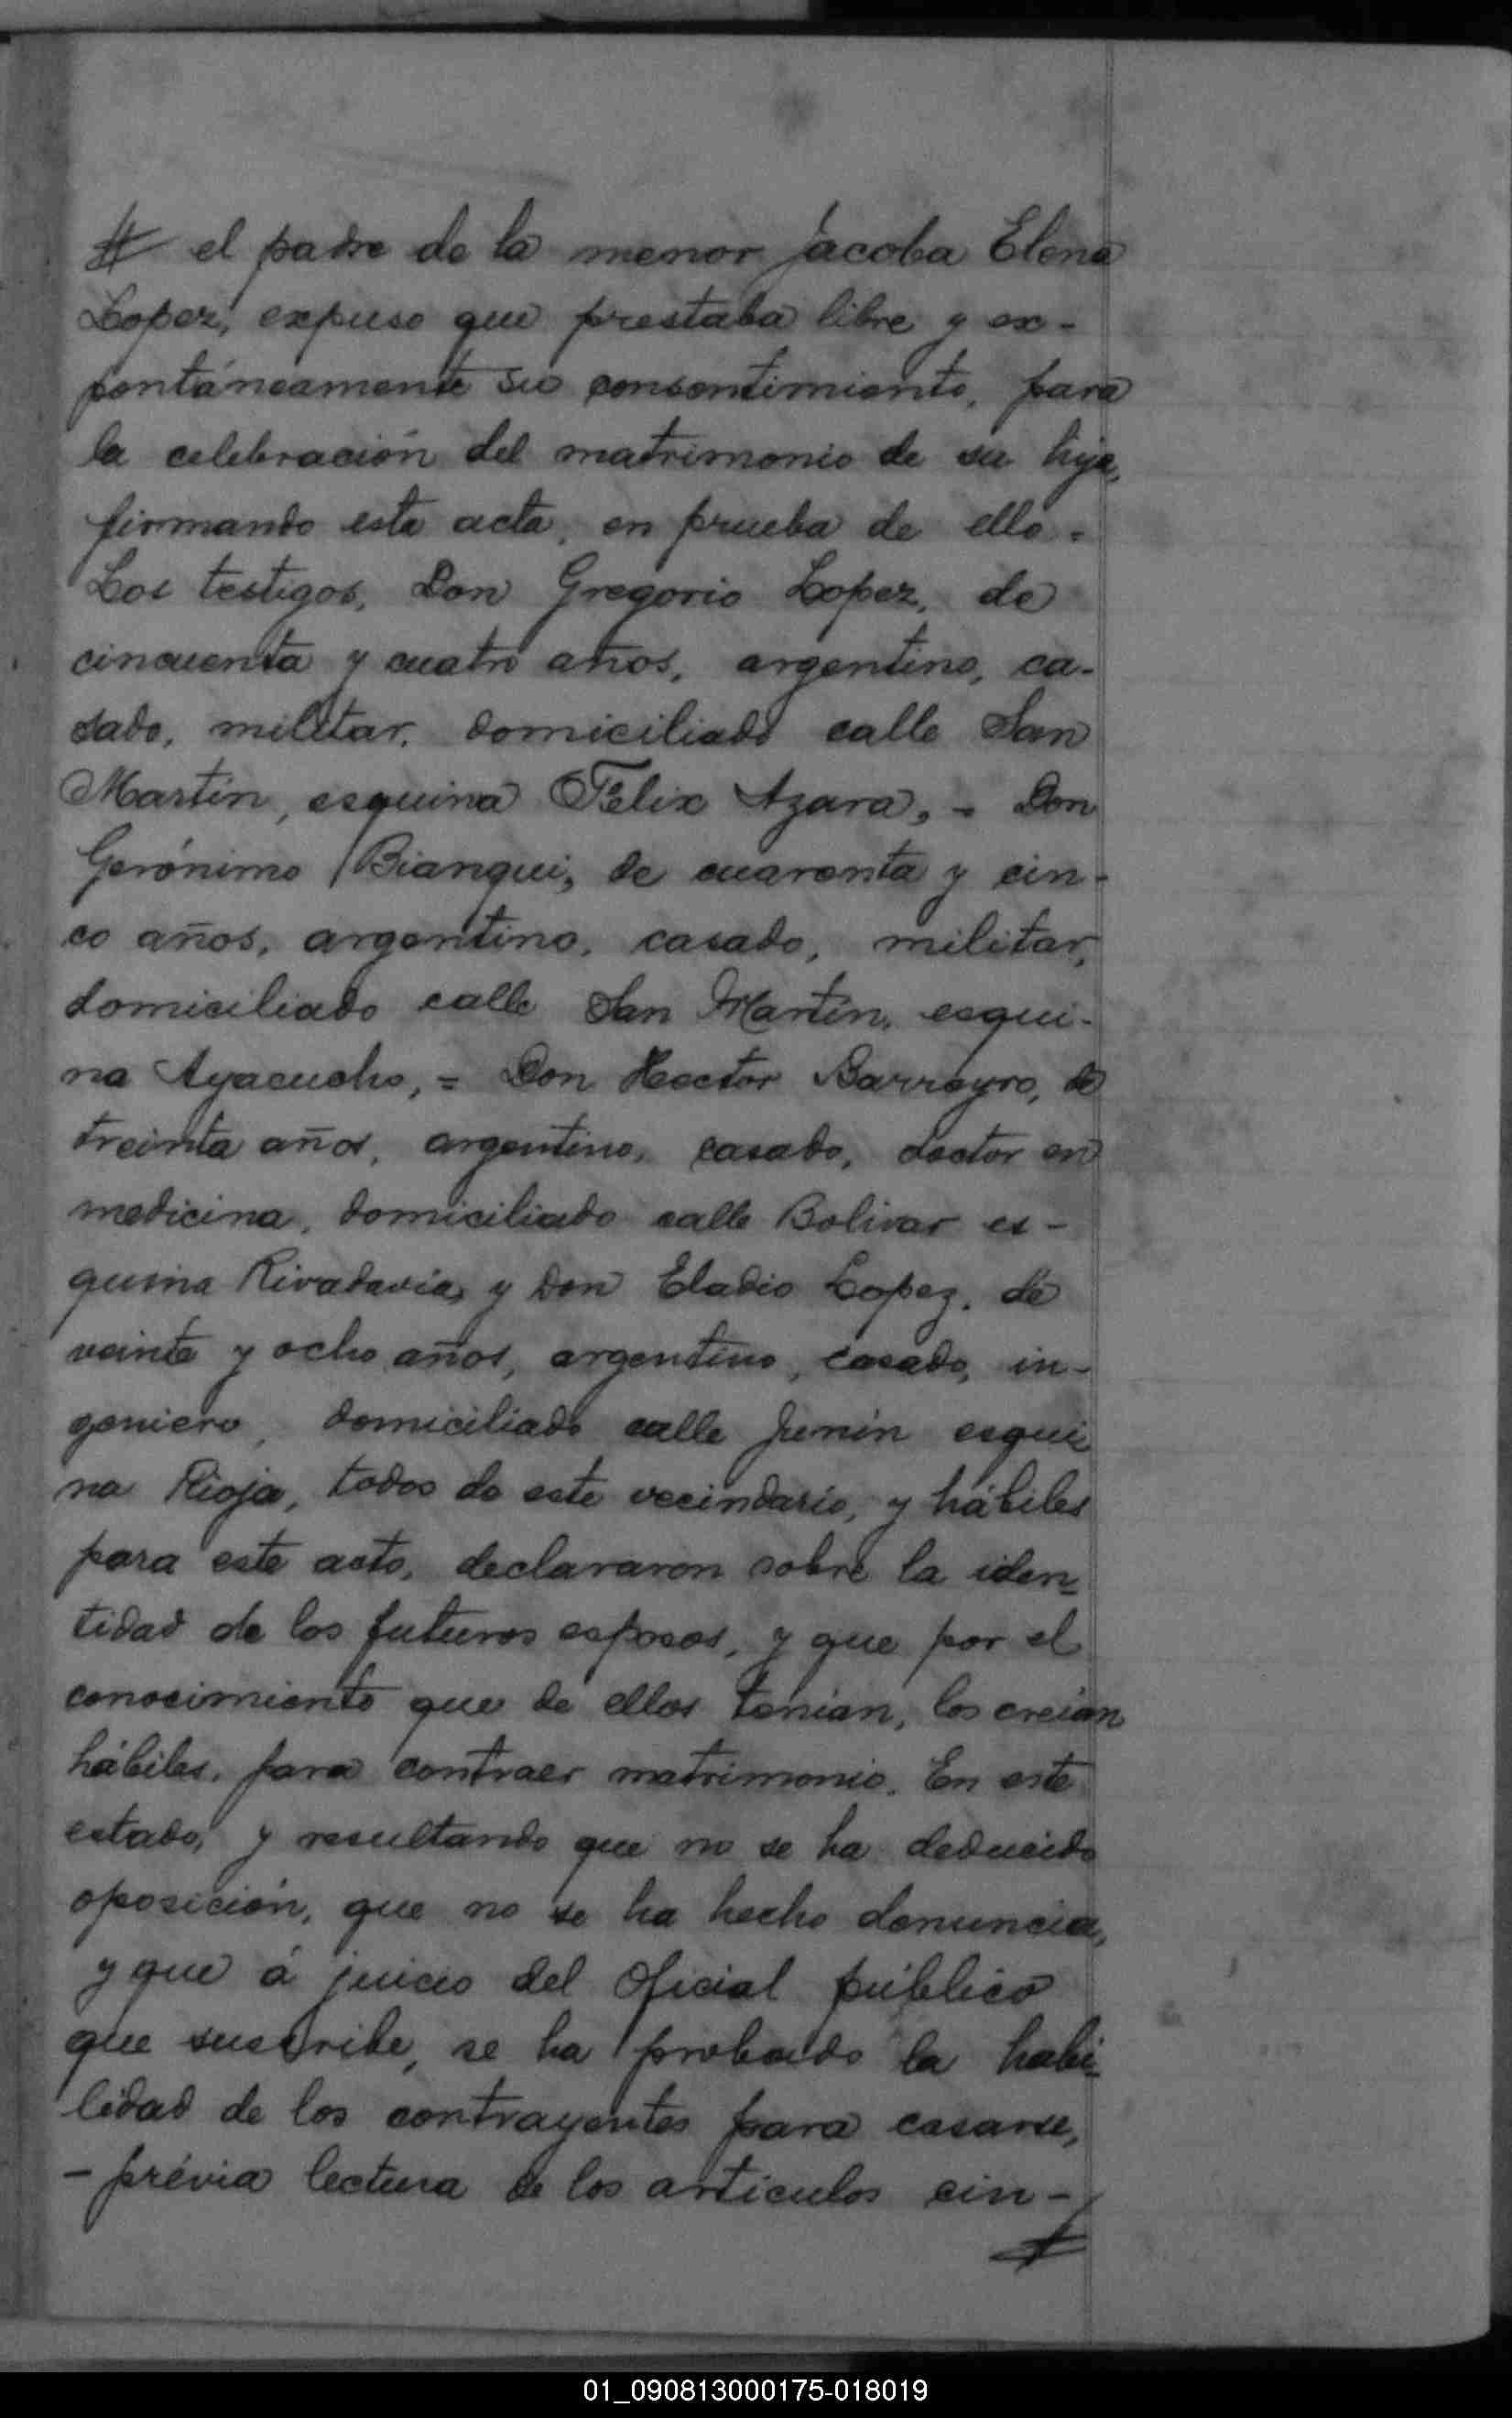 # el padre de la menor Jacoba Elena
Lopez, expuso que prestaba libre y ex-
pontáneamente su consentimiento, para
la celebración del matrimonio de su hija,
firmando esta acta, en prueba de ello.-
Los testigos, Don Gregorio Lopez, de
cincuenta y cuatro años, argentino, ca-
sado, militar, domiciliado calle San
Martin, esquina Félix Azara, - Don
Gerónimo Bianqui, de cuarenta y cin-
co años, argentino, casado, militar,
domiciliado calle San Martin, esqui-
na Ayacucho, = Don Hector Barreyro, de
treinta años, argentino, casado, doctor en
medicina, domiciliado calle Bolivar es-
quina Rivadavia, y Don Eladio Lopez, de
veinte y ocho años, argentino, casado, in-
geniero, domiciliado calle Junin esqui
na Rioja, todos de este vecindario, y hábiles
para este acto, declararon sobre la iden-
tidad de los futuros esposos, y que por el
conocimiento que de ellos tenian, los creian
hábiles, para contraer matrimonio. En este
estado, y resultando que no se ha deducido
oposición, que no se ha hecho denuncia,
y que á juicio del Oficial público
que suscribe, se ha probado la habi-
lidad de los contrayentes para casarse,
- prévia lectura de los articulos cin-
#
01_090813000175-018019